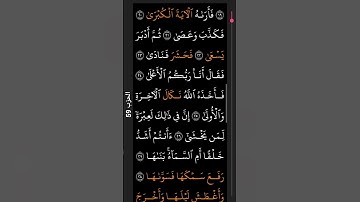 فَأَرَىٰهُ ٱلْأٓيَةَ ٱلْكُبْرَىٰ ٢٠
فَكَذَّبَ وَعَصَىٰ ٢١ ثُمَّ أَدْبَرَ
يَسْعَىٰ ٢٢ فَحَشَرَ فَنَادَىٰ ٢٣
فَقَالَ أَنَا۠ رَبُّكُمُ ٱلْأَعْلَىٰ ٢٤
فَأَخَذَهُ ٱللَّهُ نَكَالَ ٱلْأٓخِرَةِ
وَٱلْأُولَىٰٓ ٢٥ إِنَّ فِى ذَٰلِكَ لَعِبْرَةً
لِّمَن يَخْشَىٰٓ ٢٦ ءَأَنتُمْ أَشَدُّ
خَلْقًا أَمِ ٱلسَّمَآءُ بَنَىٰهَا ٢٧
رَفَعَ سَمْكَهَا فَسَوَّىٰهَا ٢٨
وَأَغْطَشَ لَيْلَهَا وَأَخْرَجَ
الحزب 59